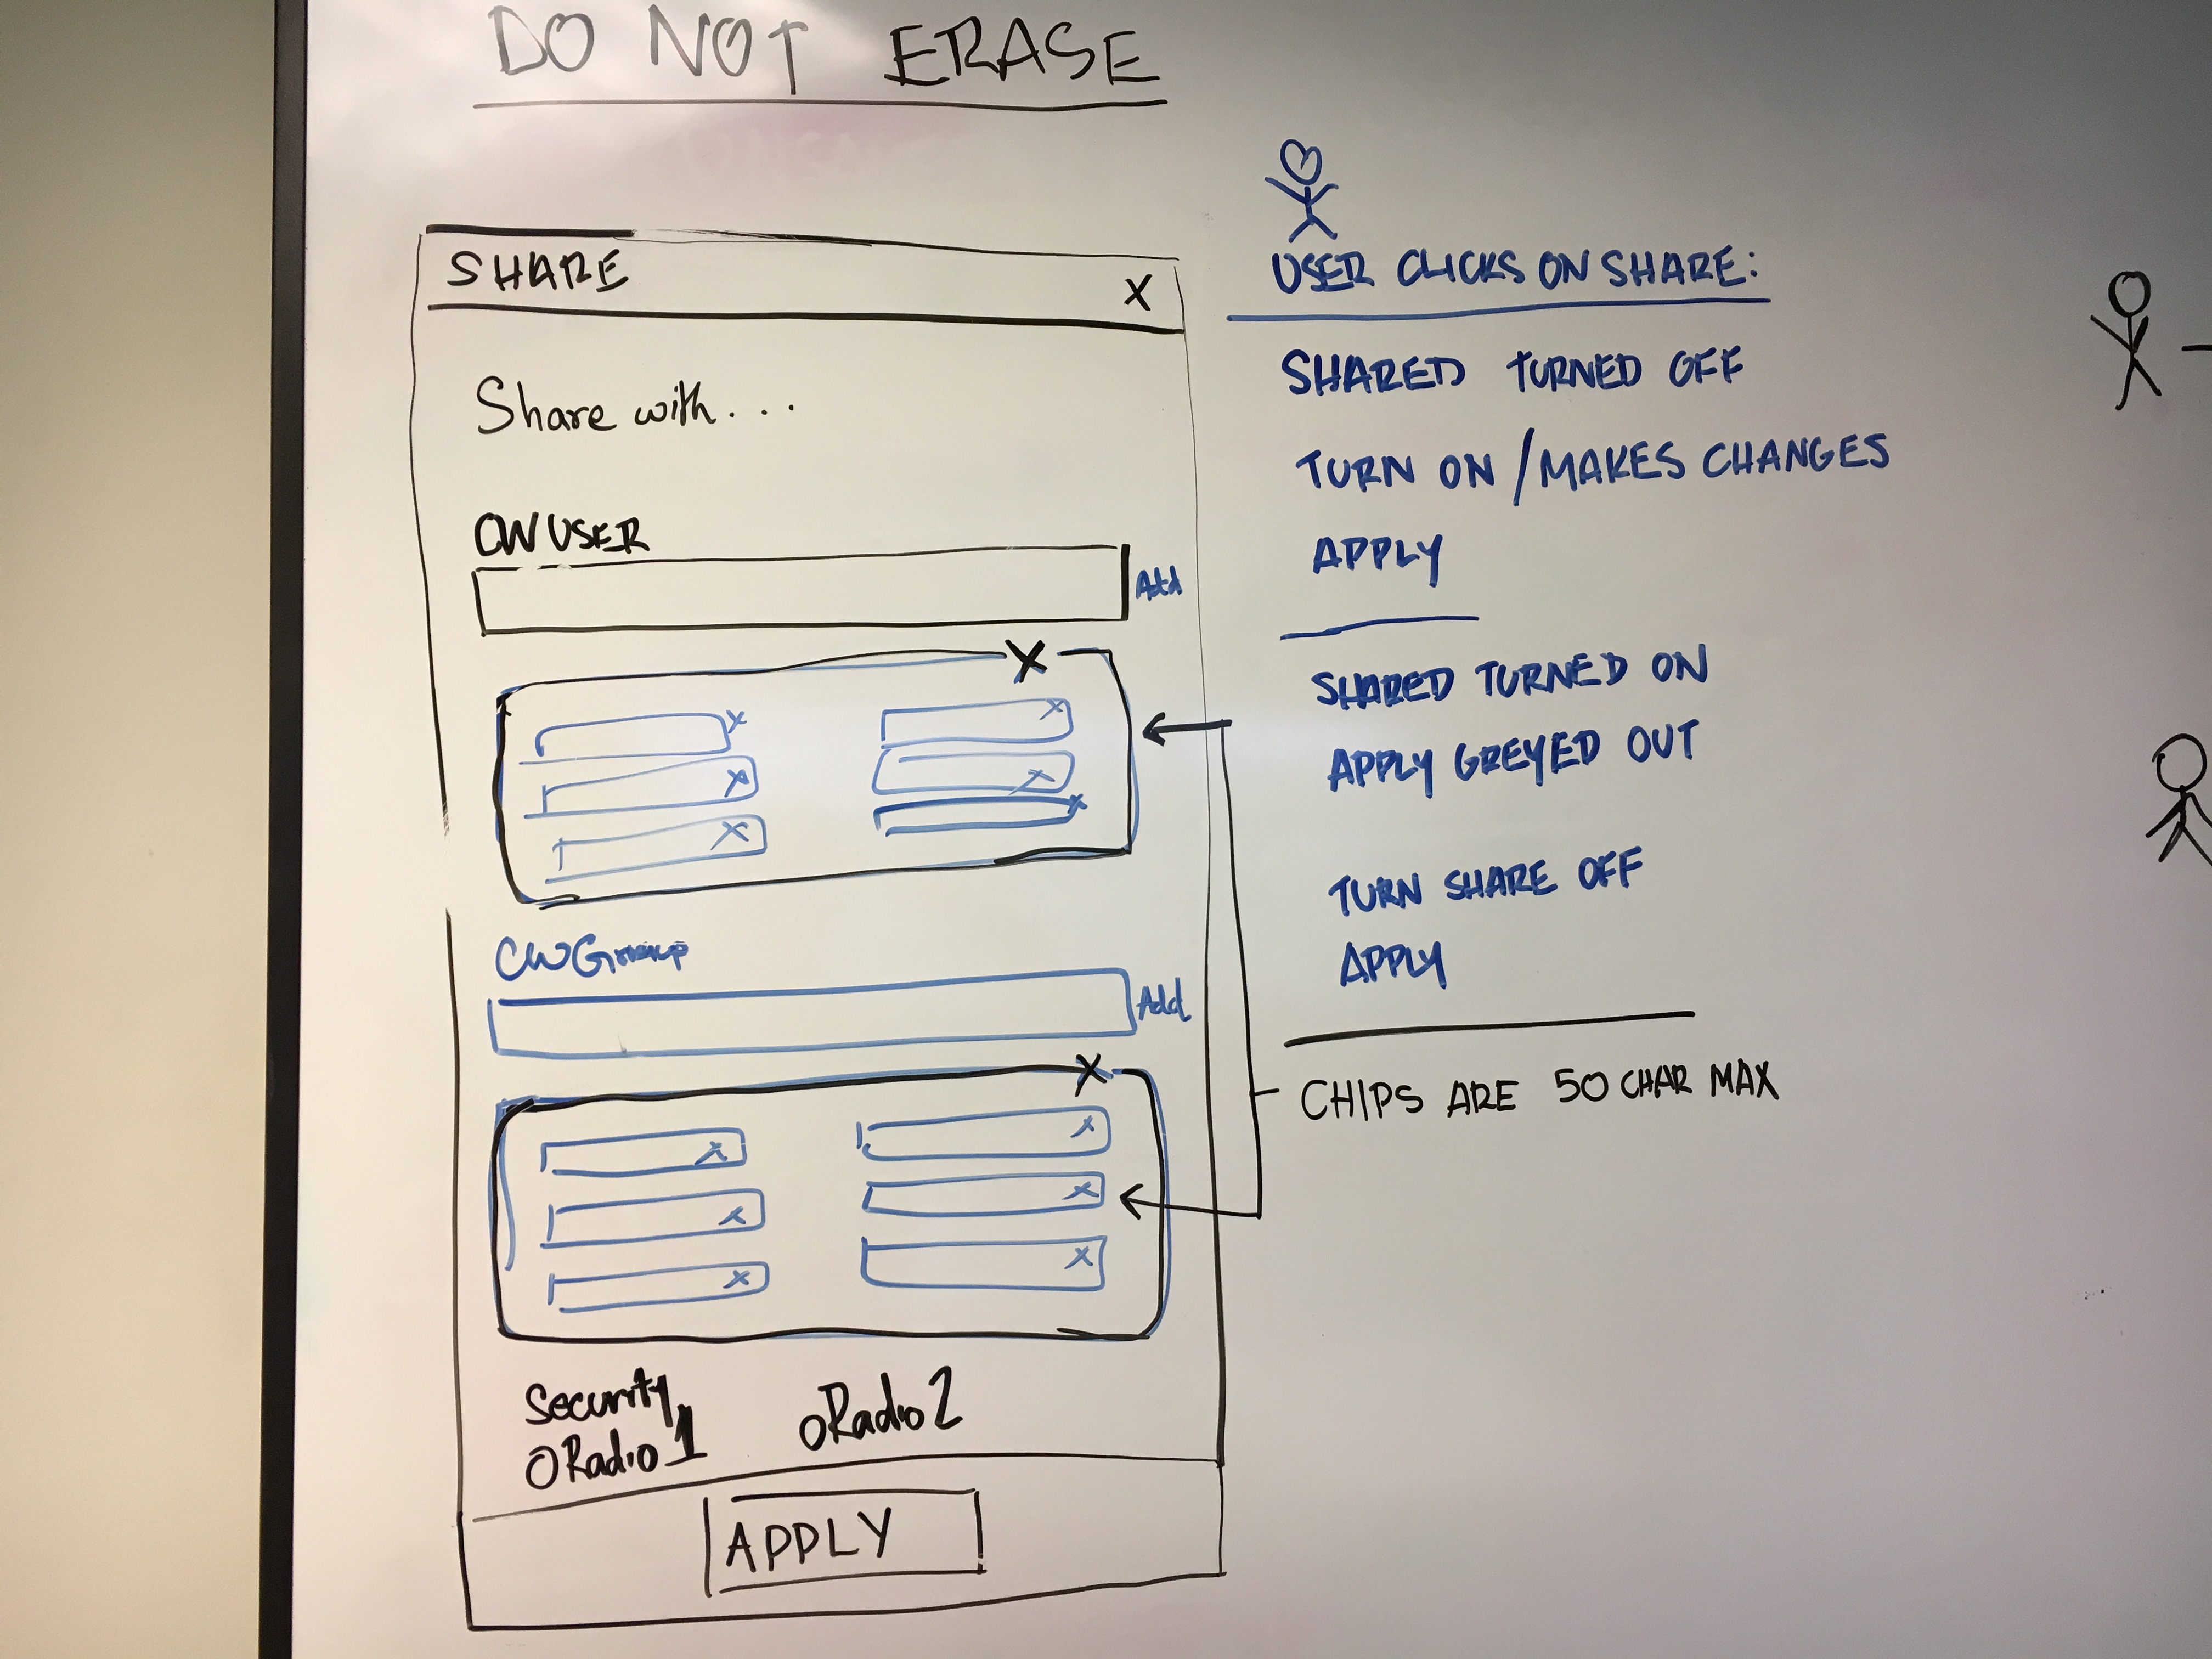 DO NOT ERASE
SHARE X
Share with...
CW USER
Add
X
CWGroup
Add
X
Security
O Radio 1
o Radio 2
APPLY
USER CLICKS ON SHARE:
SHARED TURNED OFF
TURN ON / MAKES CHANGES
APPLY
SHARED TURNED ON
APPLY GREYED OUT
TURN SHARE OFF
APPLY
CHIPS ARE 50 CHAR MAX